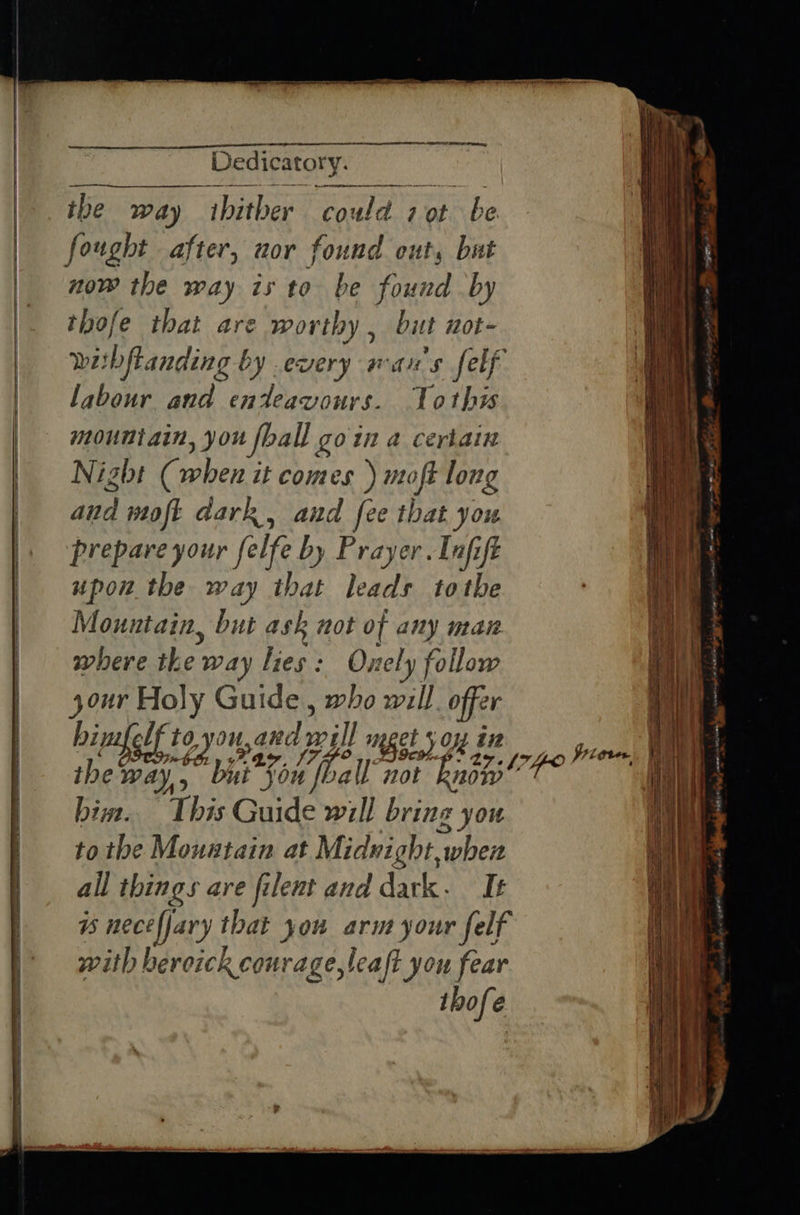 Dedicatory.
the way thither could not be
ſought after, nor found out, but
now the way is to be found by
thoſe that are worthy, but not-
withſtanding by every man's ſelf
labour and endeavours. To this
mountain, you ſhall go in a certain
Night (when it comes) moſt long
and moſt dark, and ſee that you
prepare your ſelfe by Prayer. Inſiſt
upon the way that leads to the
Mountain, but ask not of any man
where the way lies: Onely follow
your Holy Guide, who will offer
himſelf to you, and will meet you in
27. 1740 27. 1740
the way, but you ſhall not know
him. This Guide will bring you
to the Mountain at Midnight, when
all things are ſilent and dark. It
is neceſſary that you arm your ſelf
with heroick courage, leaſt you fear
thoſe